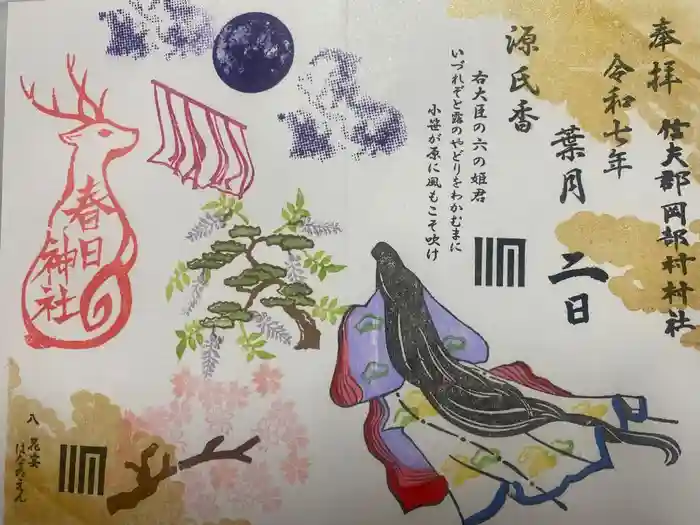 奉拝
信夫郡岡部村村社
令和七年
葉月 二日
源氏香
右大臣の六の姫君
いづれぞと露のやどりをわかむまに
小笹が原に風もこそ吹け
春日
神社
八 花宴
はなのえん